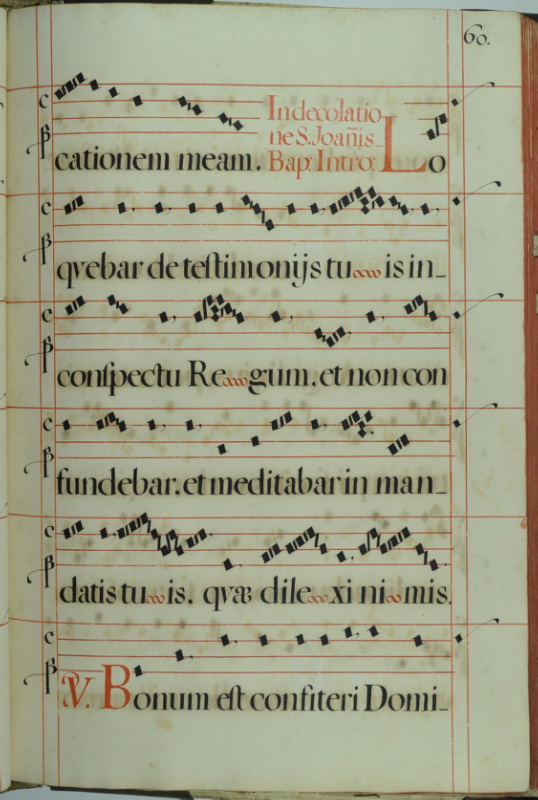 60.
In decolatio
ne S. Joañis
Bap: Intro:
cationem meam. Lo
qvebar de testimonijs tu is in_
conspectu Re gum. et non con
fundebar. et meditabar in man_
datis tu is. qvæ dile xi ni mis.
V. Bonum est confiteri Domi_